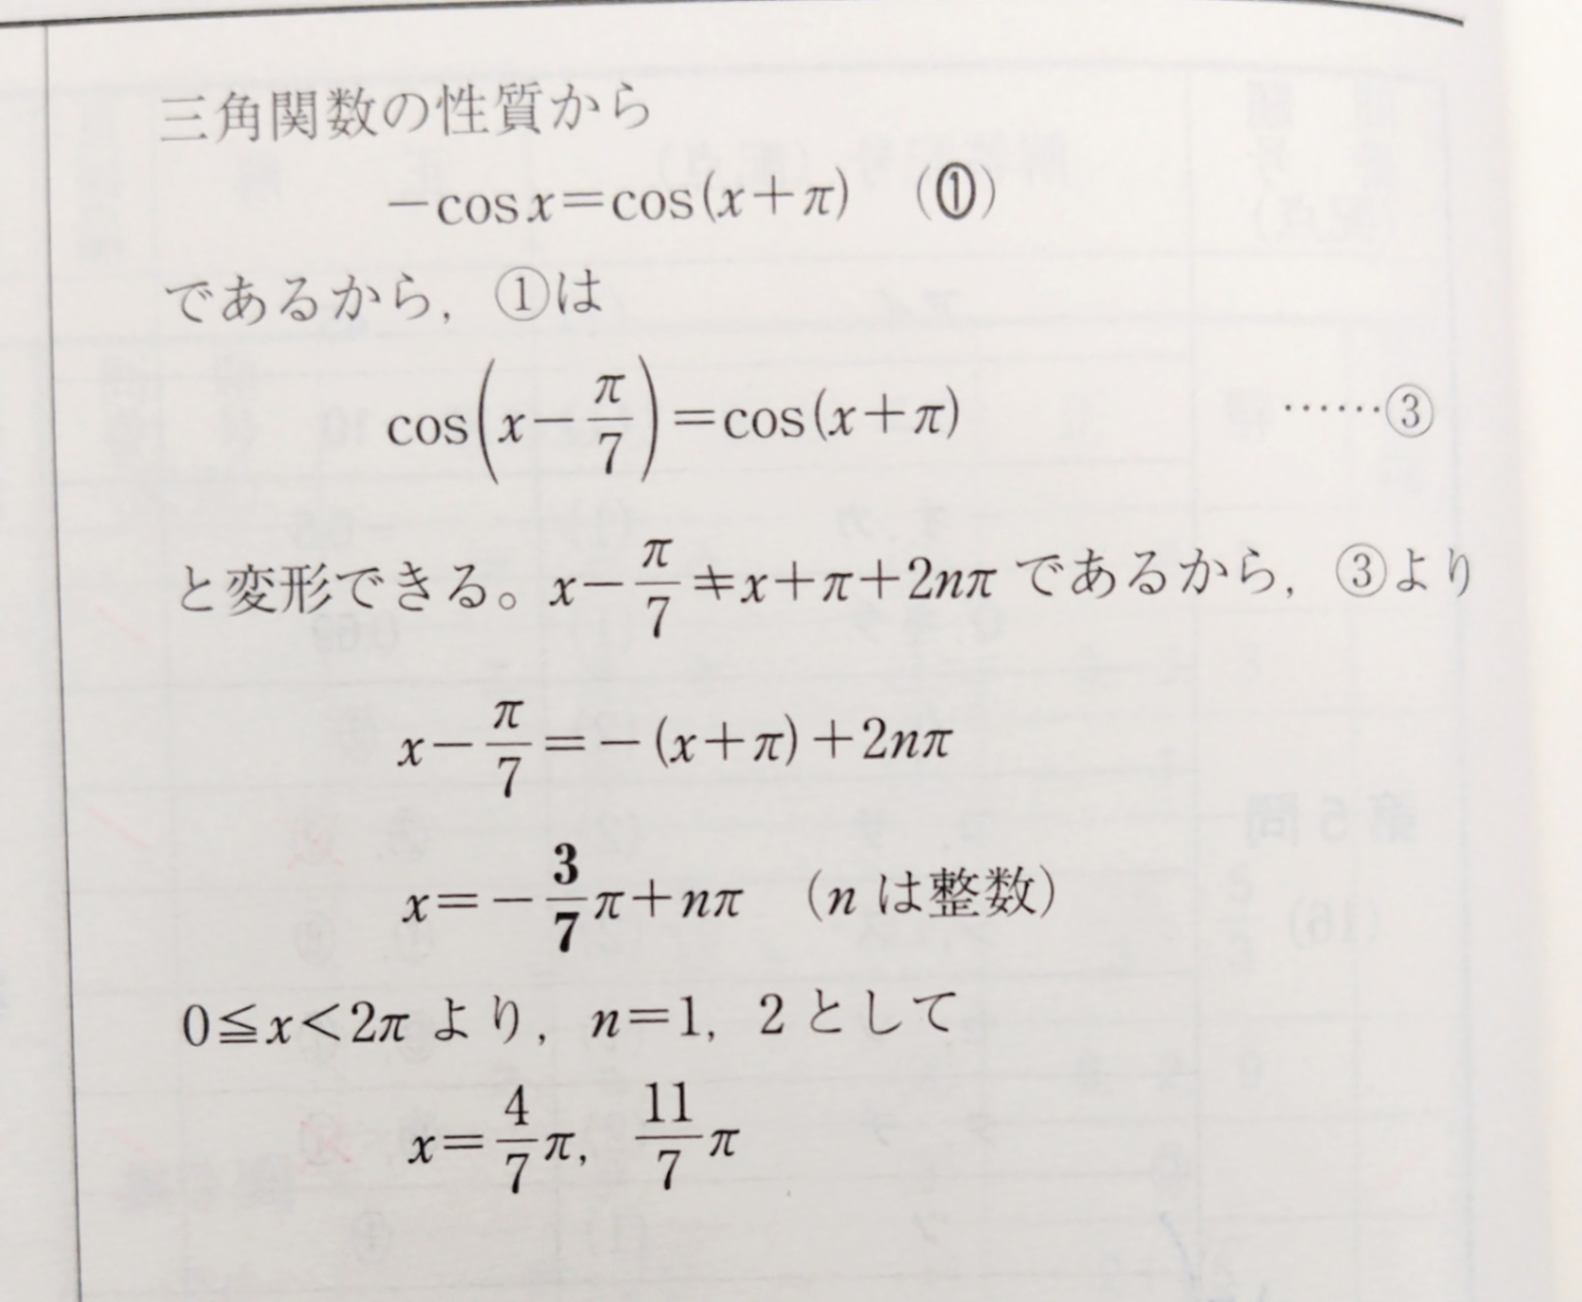 三角関数の性質から
−cos x=cos(x+π) (①)
であるから,①は
cos(x−π/7)=cos(x+π) ……③
と変形できる。x−π/7≠x+π+2nπ であるから,③より
x−π/7=−(x+π)+2nπ
x=−3/7π+nπ (n は整数)
0≦x<2π より,n=1,2 として
x=4/7π,11/7π